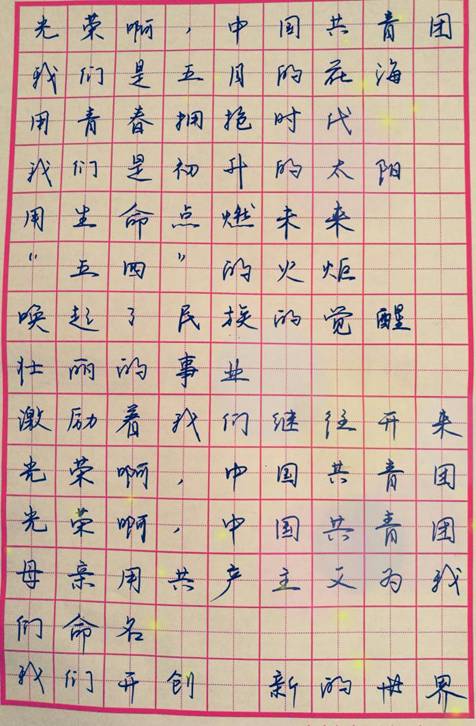 光荣啊，中国共青团
我们是五月的花海
用青春拥抱时代
我们是初升的太阳
用生命点燃未来
“五四”的火炬
唤起了民族的觉醒
壮丽的事业
激励着我们继往开来
光荣啊，中国共青团
光荣啊，中国共青团
母亲用共产主义为我
们命名
我们开创 新的世界